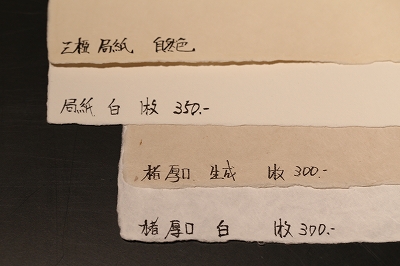 三椏 局紙 自然色
局紙 白 1枚 350.-
楮厚口 生成 1枚 300.-
楮厚口 白 1枚 300.-